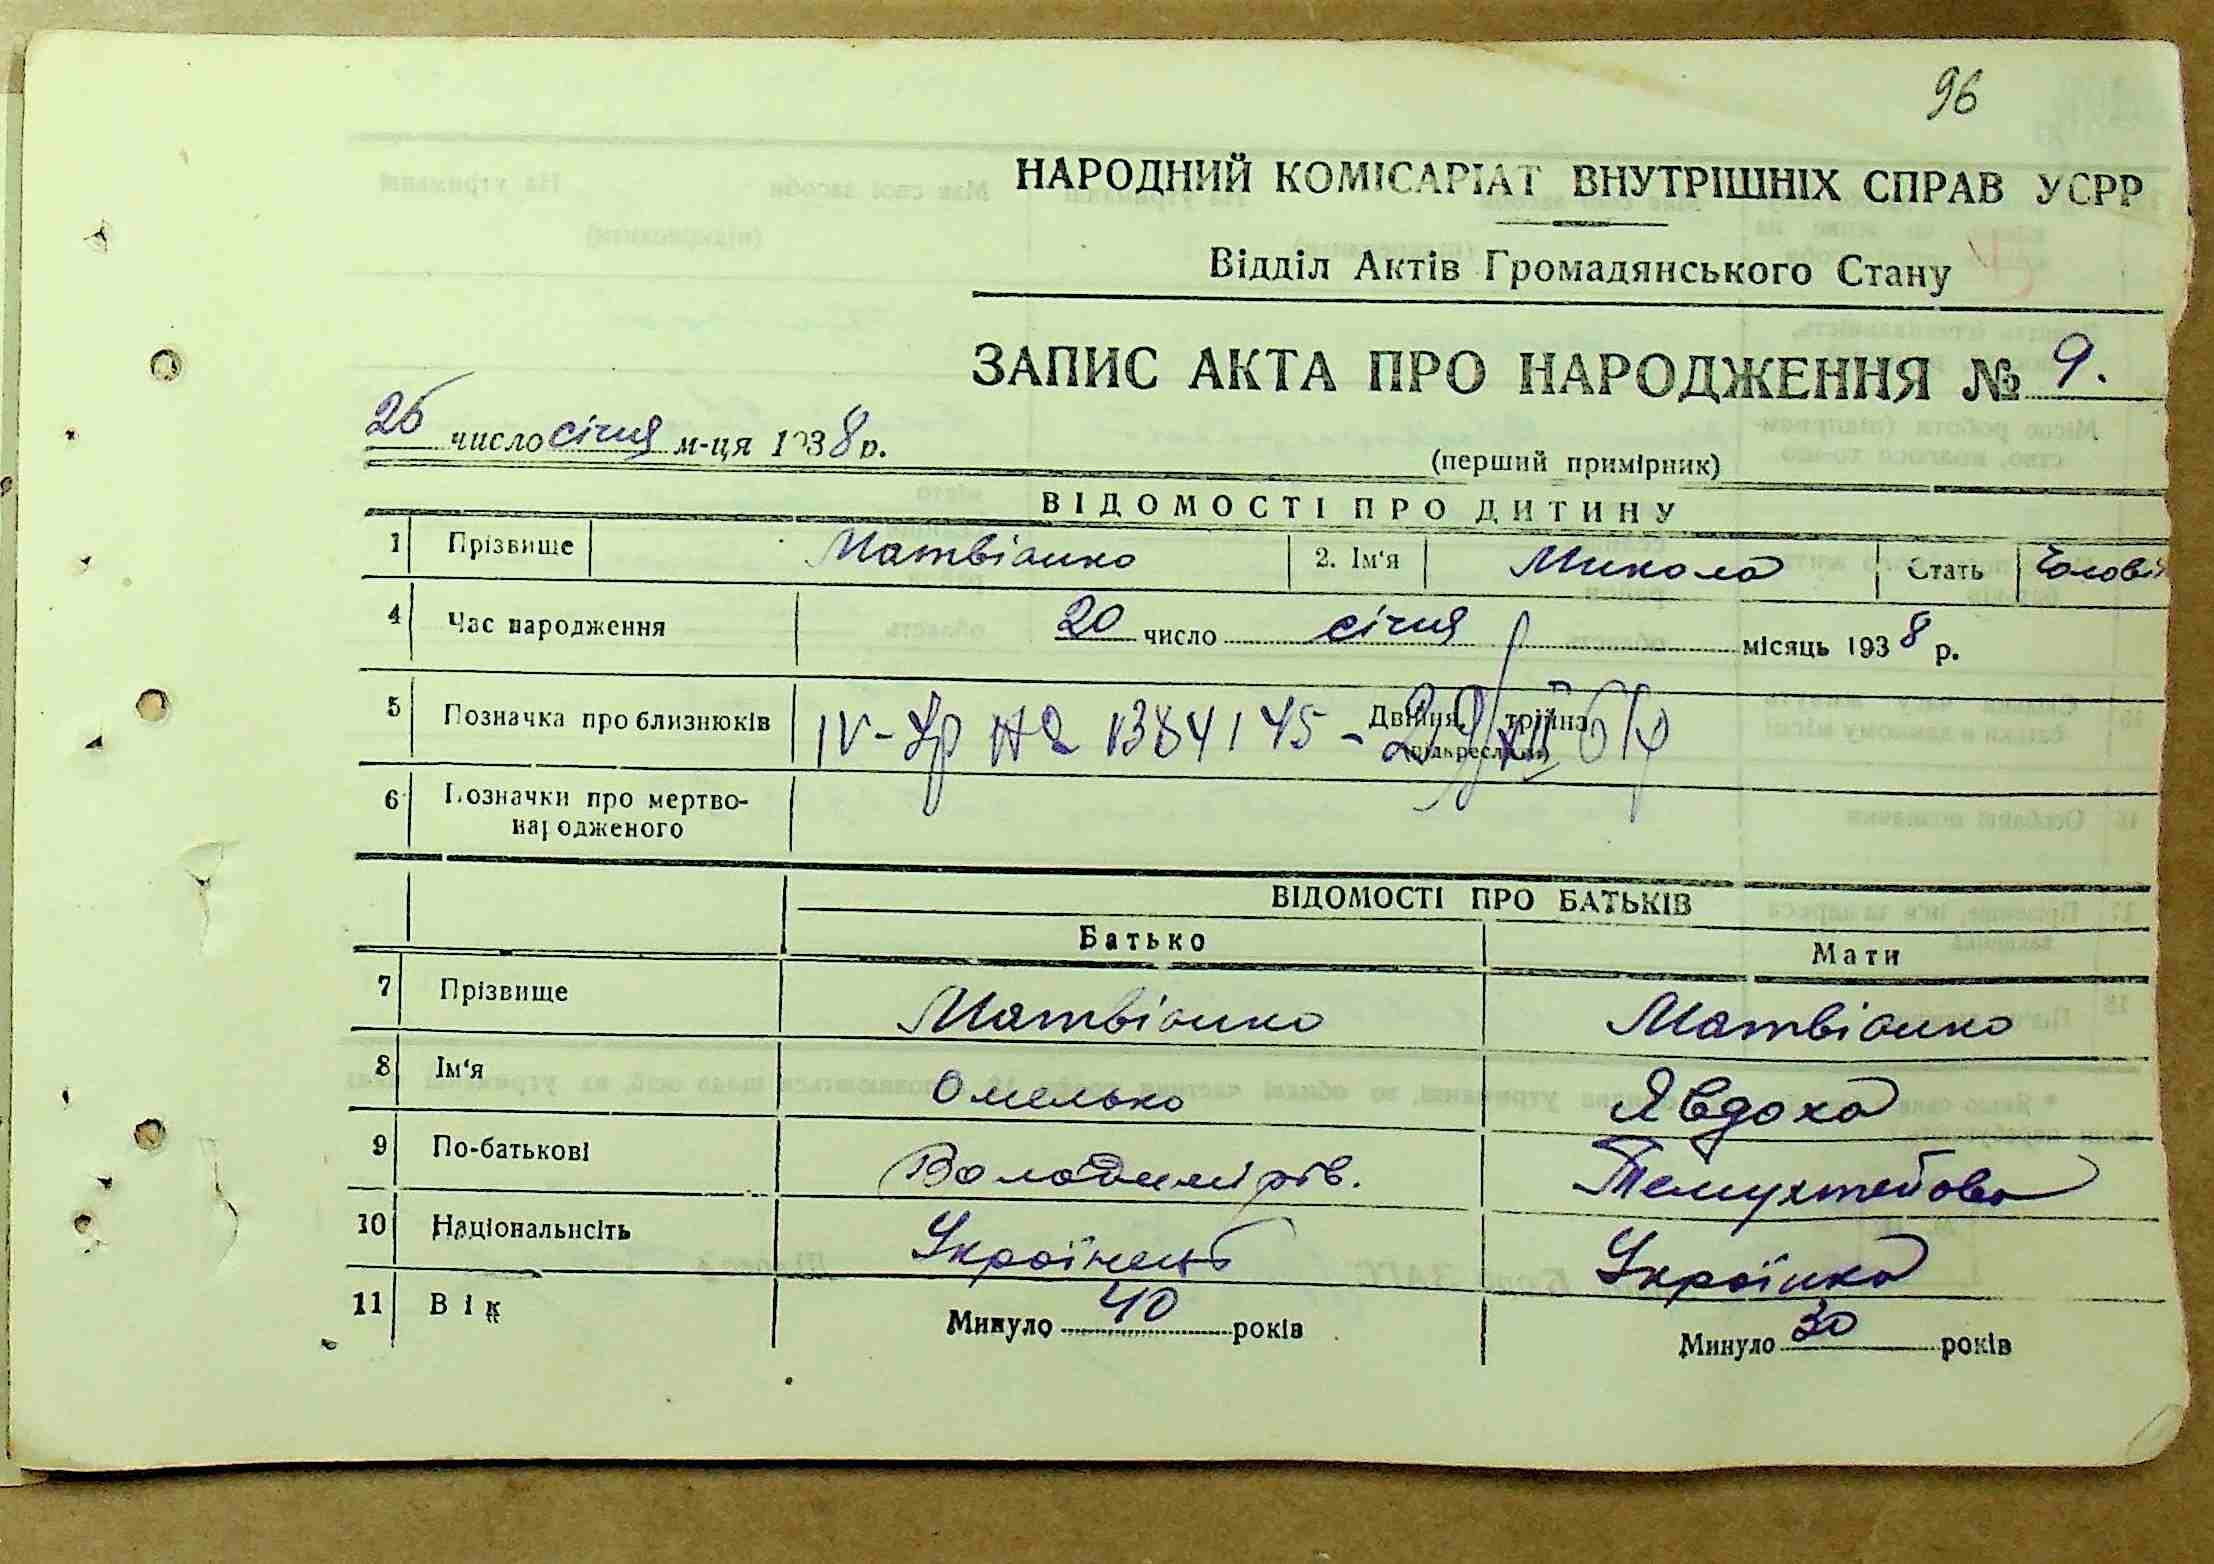 96
НАРОДНИЙ КОМІСАРІАТ ВНУТРІШНІХ СПРАВ УСРР
Відділ Актів Громадянського Стану
ЗАПИС АКТА ПРО НАРОДЖЕННЯ № 9.
26 число січня м-ця 1938 р.
(перший примірник)
ВІДОМОСТІ ПРО ДИТИНУ
1 Прізвище Матвієнко 2. Ім'я Микола Стать Чолов
4 Час народження 20 число січня місяць 1938 р.
5 Позначка про близнюків Двійня, трійна
(підкреслити)
IV-
№ 1384145 -
6 Позначки про мертво-
народженого
ВІДОМОСТІ ПРО БАТЬКІВ
Батько Мати
7 Прізвище Матвієнко Матвієнко
8 Ім'я Омелько Явдоха
9 По-батькові Володимирів.
10 Національнсіть Українець Українка
11 Вік Минуло 40 років Минуло 30 років